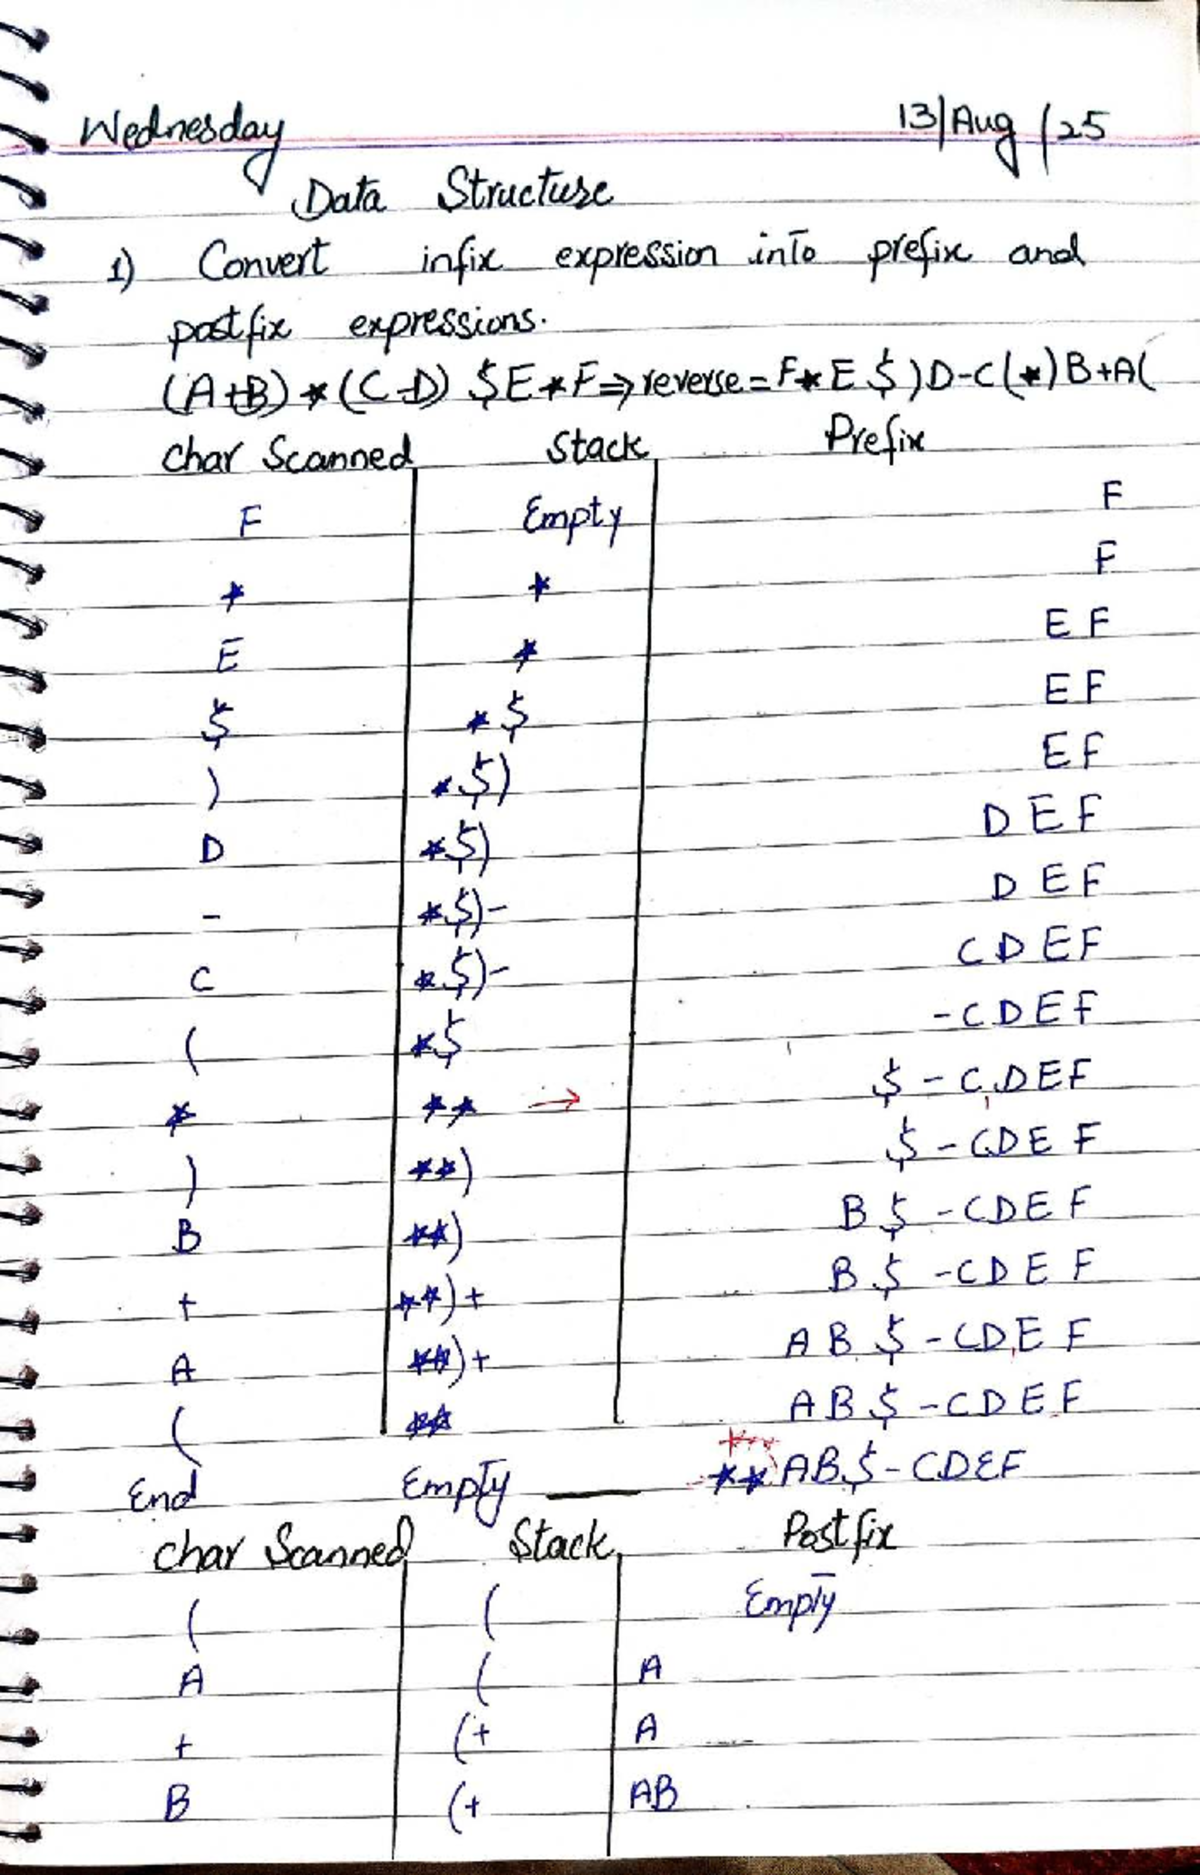 Wednesday 13/Aug/25
Data Structure
1) Convert infix expression into prefix and
postfix expressions.
(A+B)*(C-D) $E*F⇒reverse=F*E$)D-C(*)B+A(
char Scanned Stack Prefix
F Empty F
* * F
E * EF
$ *$ EF
) *$) EF
D *$) DEF
- *$)- DEF
C *$)- CDEF
( *$ -CDEF
* ** → $-CDEF
) **) $-CDEF
B **) B$-CDEF
+ **)+ B$-CDEF
A **)+ AB$-CDEF
( ** AB$-CDEF
+
End Empty — **AB$-CDEF
char Scanned Stack Postfix
( ( Empty
A ( A
+ (+ A
B (+ AB